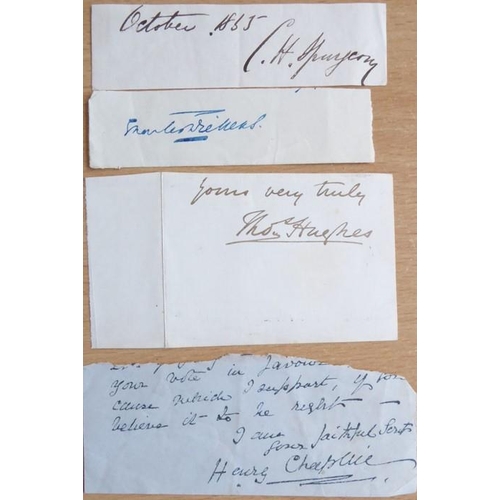 October 1865
C. H. Spurgeon
Charles Dickens.
Yours very truly
Thos Hughes
in favour
your vote
cause which I support, if you
believe it to be right –
I am
your faithful Servt
Henry Chaplin